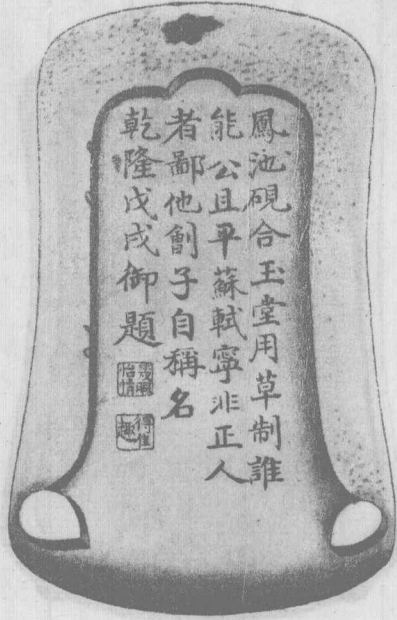 鳳池硯合玉堂用草制誰
能公且平蘇軾寧非正人
者鄙他劊子自稱名
乾隆戊戌御題
幾暇怡情
得佳趣